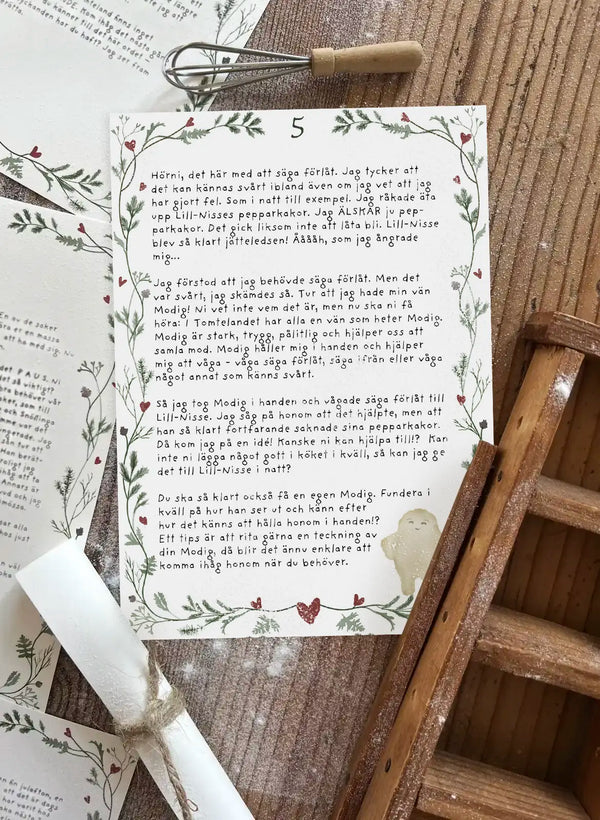 5
Hörni, det här med att säga förlåt. Jag tycker att
det kan kännas svårt ibland även om jag vet att jag
har gjort fel. Som i natt till exempel. Jag råkade äta
upp Lill-Nisses pepparkakor. Jag ÄLSKAR ju pep-
parkakor. Det gick liksom inte att låta bli. Lill-Nisse
blev så klart jätteledsen! Ååååh, som jag ångrade
mig...
Jag förstod att jag behövde säga förlåt. Men det
var svårt, jag skämdes så. Tur att jag hade min vän
Modig! Ni vet inte vem det är, men nu ska ni få
höra: I Tomtelandet har alla en vän som heter Modig.
Modig är stark, trygg, pålitlig och hjälper oss att
samla mod. Modig håller mig i handen och hjälper
mig att våga - våga säga förlåt, säga ifrån eller våga
något annat som känns svårt.
Så jag tog Modig i handen och vågade säga förlåt till
Lill-Nisse. Jag såg på honom att det hjälpte, men att
han så klart fortfarande saknade sina pepparkakor.
Då kom jag på en idé! Kanske ni kan hjälpa till!? Kan
inte ni lägga något gott i köket i kväll, så kan jag ge
det till Lill-Nisse i natt?
Du ska så klart också få en egen Modig. Fundera i
kväll på hur han ser ut och känn efter
hur det känns att hålla honom i handen!?
Ett tips är att rita gärna en teckning av
din Modig, då blir det ännu enklare att
komma ihåg honom när du behöver.